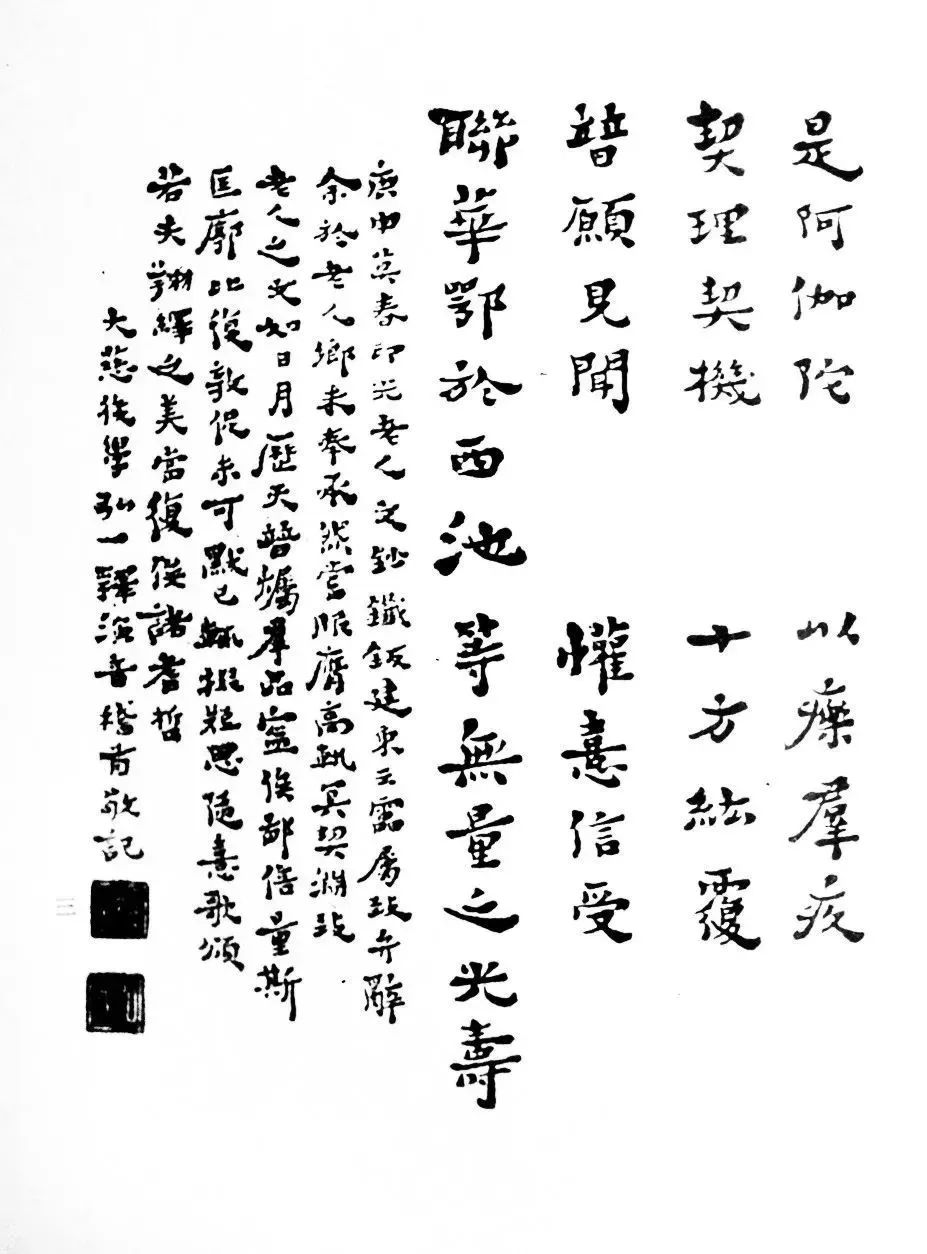 是阿伽陀 以療羣疚
契理契機 十方紘覆
普願見聞 懽憙信受
聯華鄂於西池 等無量之光壽
庚申莫春印光老人文鈔鐫鈑建東云雷屬致弁辭
余於老人鄉未奉承然嘗服膺高軌冥契淵致
老人之文如日月歷天普燭羣品寧俟鄙倍量斯
匡廓比復敦促未可默已輒思隨憙歌頌
若夫翔繹之美當復俟諸耆哲
大慈後學弘一釋演音稽首敬記
三